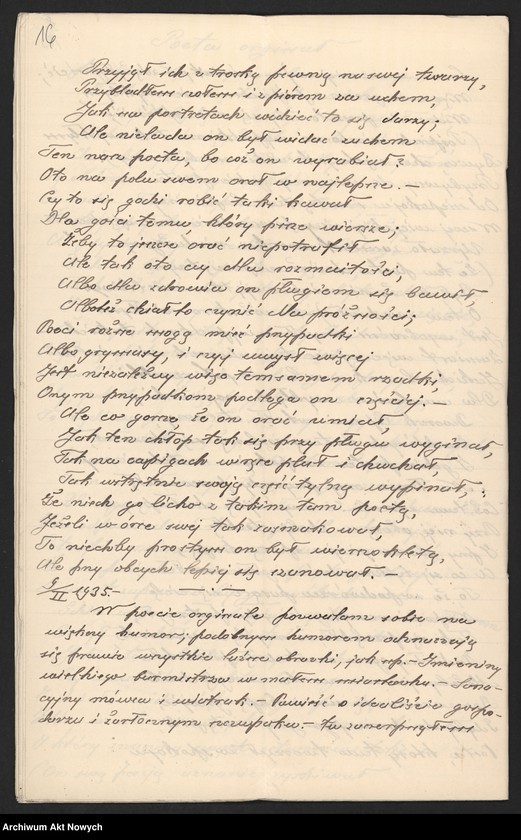 16
Przyjął ich z troską pewną na swej twarzy,
Przybladłem czołem i z piórem za uchem,
Jak na portretach widzieć to się darzy;
Ale nielada on był widać zuchem
Ten nasz poeta, bo cóż on wyrabiał?
Oto na polu swem orał w najlepsze. —
Czy to się godzi robić taki kawał
Dla gości temu, który pisze wiersze;
Żeby to jeszcze orać niepotrafił
Ale tak oto czy dla rozmaitości,
Albo dla zdrowia on pługiem się bawił,
Albo też chciał to czynić dla próżności;
Poeci różne mogą mieć przypadki
Albo grymasy, i czyj umysł więcej
Jest niezależny więc temsamem rzadki
Onym przypadkom podlega on częściej. —
Ale co gorzej, że on orać umiał,
Jak ten chłop tak się przy pługu wyginał,
Tak na capigach wirze pluł i chwchał,
Tak wstrętnie swoją część tylną wypinał,
Że niech go licho z takim tam poetą,
Jeżeli w orce swej tak zasmakował,
To niechby prostym on był wierszokletą,
Ale przy obcych lepiej się szanował. —
9/II 1935. —
W poecie orginale pozwalam sobie na
większy humor; podobnym humorem odznaczają
się prawie wszystkie luźne obrazki, jak np. — Imieniny
wielkiego burmistrza w małem miasteczku. — Sana-
cyjny mówca i wiatrak. — Powieść o idealiście gospo-
darzu i żarłocznym szczupaku. — tu zaczerpnąłem